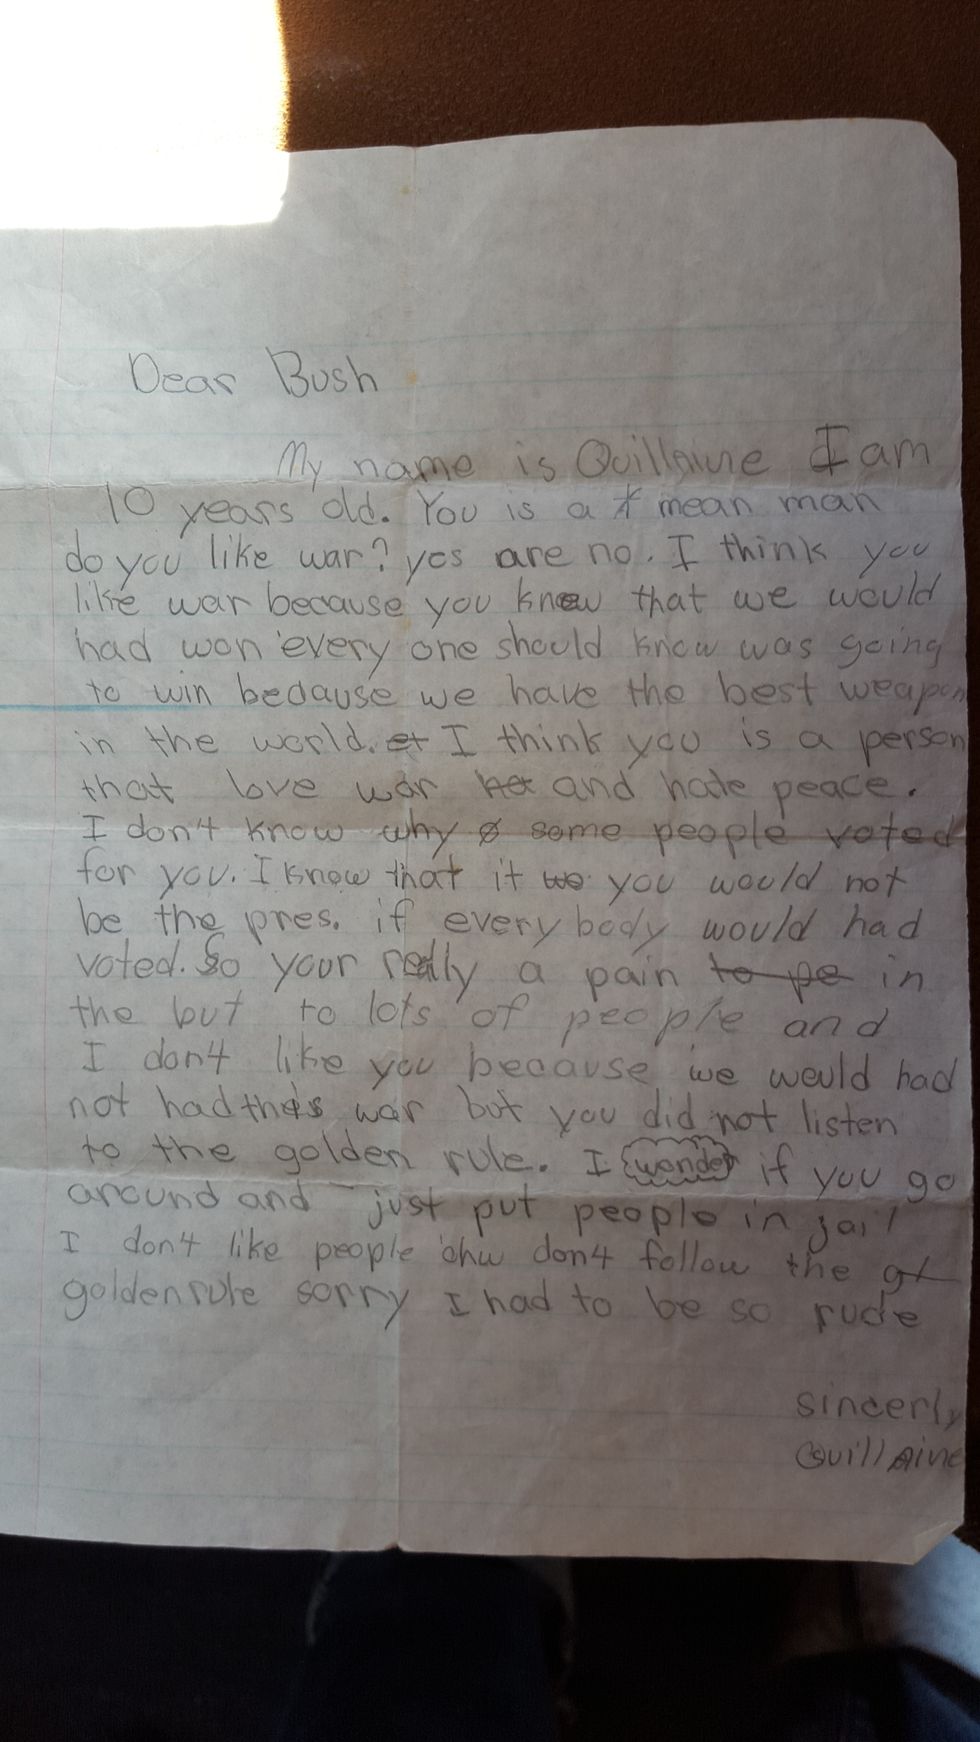 Dear Bush
My name is Quillaine I am
10 years old. You is a mean man
do you like war? yes are no. I think you
like war because you knew that we would
had won every one should know was going
to win bedause we have the best weapon
in the world. et I think you is a person
that love war and hate peace.
I don't know why some people voted
for you. I know that it wo you would not
be the pres. if every body would had
voted. So your really a pain to pe in
the but to lots of people and
I don't like you because we would had
not had this war but you did not listen
to the golden rule. I wonder if you go
around and just put people in jail
I don't like people ohw don't follow the gl
golden rule sorry I had to be so rude
sincerly
Quillaine